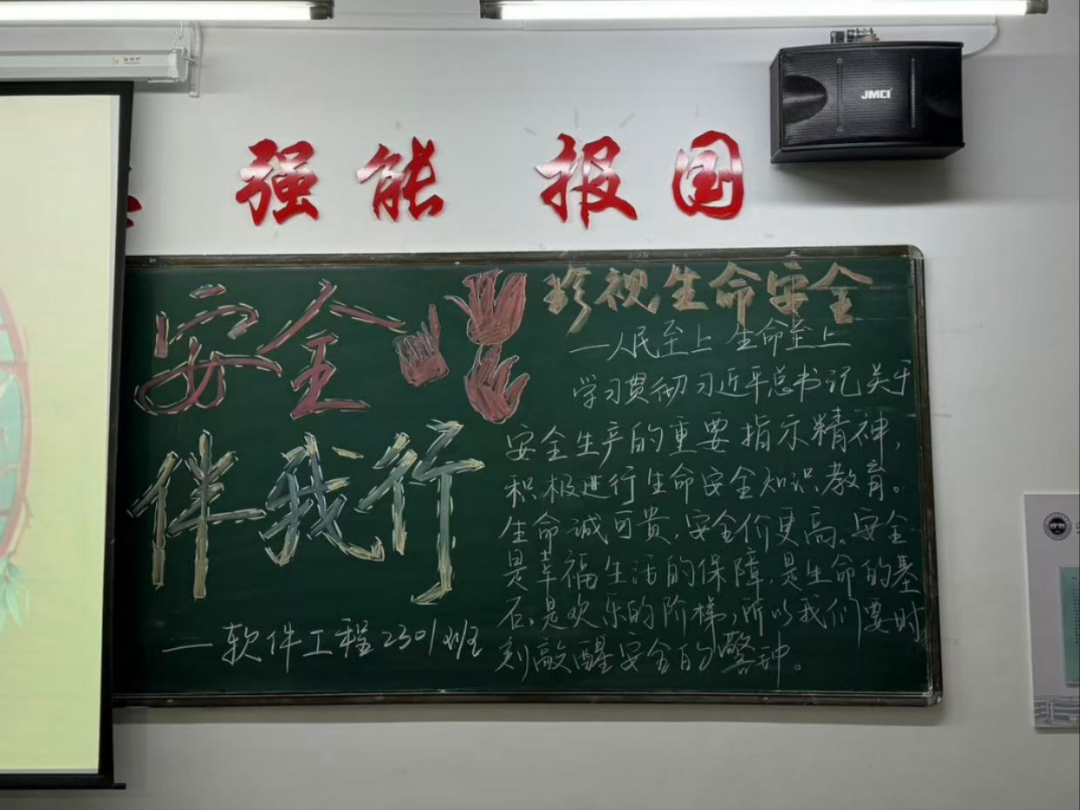 强能 报国
JMCI
安全
伴我行
—软件工程2301班
珍视生命安全
—人民至上 生命至上
学习贯彻习近平总书记关于
安全生产的重要指示精神，
积极进行生命安全知识教育。
生命诚可贵，安全价更高。安全
是幸福生活的保障，是生命的基
石，是欢乐的阶梯，所以我们要时
刻敲醒安全的警钟。